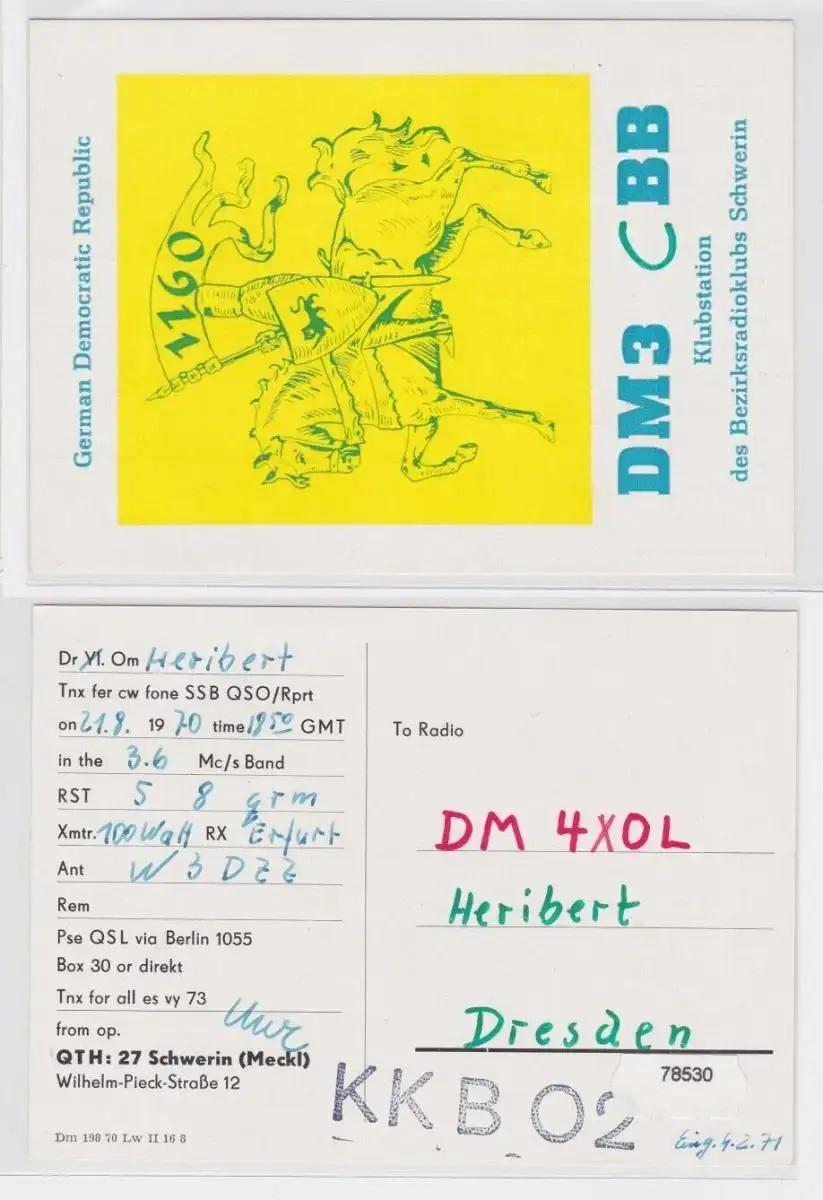 German Democratic Republic
1160
DM3 CBB
Klubstation
des Bezirksradioklubs Schwerin
Dr Yl. Om Heribert
Tnx fer cw fone SSB QSO/Rprt
on 21.8. 1970 time 1850 GMT
in the 3.6 Mc/s Band
RST 5 8 grm
Xmtr. 100 Watt RX Erfurt
Ant W 3 D Z Z
Rem
Pse QSL via Berlin 1055
Box 30 or direkt
Tnx for all es vy 73
from op.
QTH: 27 Schwerin (Meckl)
Wilhelm-Pieck-Straße 12
Dm 198 70 Lw II 16 8
To Radio
DM 4XOL
Heribert
Dresden
78530
KKB 02
Eing. 4.2.71